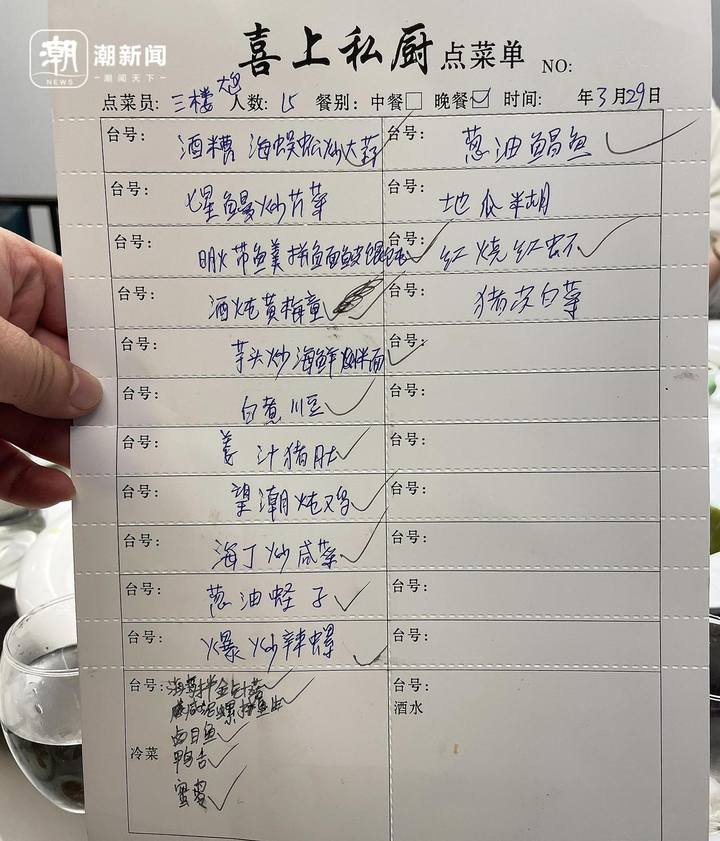 潮 潮新闻
NEWS 潮闻天下
喜上私厨点菜单 NO:
点菜员: 三楼 大包 人数: 15 餐别: 中餐 晚餐 时间: 年3月29日
台号: 酒糟 海蜈蚣炒大蒜
台号: 葱油鲳鱼
台号: 七星鳗炒芹菜
台号: 地瓜半胡
台号: 明火带鱼羹拼
台号: 红烧红虾
台号: 酒炖黄梅童
台号: 猪 白菜
台号: 芋头炒海鲜 拌面
台号:
台号: 白煮川豆
台号:
台号: 姜汁猪肚
台号:
台号: 望潮炖鸡
台号:
台号: 海丁炒咸菜
台号:
台号: 葱油蛏子
台号:
台号: 爆炒辣螺
台号:
台号:
冷菜
海蜇拌金针菇
泥螺拼
鱼
鸭舌
台号:
酒水